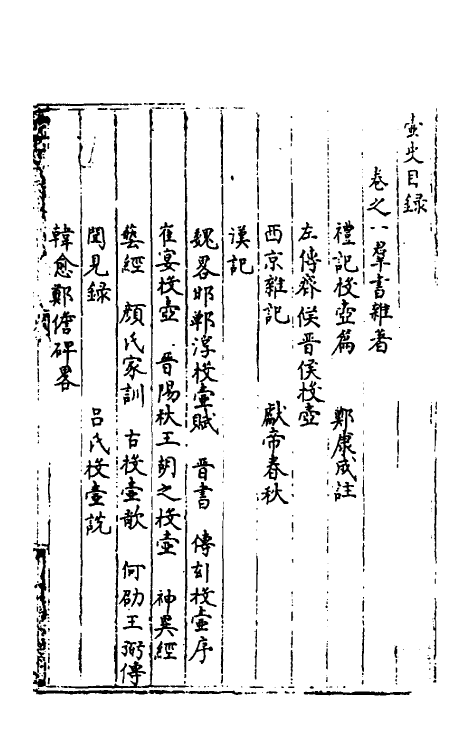 壺史目録
卷之一 羣書雜著
禮記投壺篇 鄭康成註
左傳齊侯晉侯投壺
西京雜記 獻帝春秋
漢記
魏畧邯鄲淳投壺賦 晉書 傅玄投壺序
崔宴投壺 晉陽秋王胡之投壺 神異經
藝經 顔氏家訓 古投壺歌 何劭王弼傳
聞見錄 呂氏投壺說
韓愈鄭儋碑畧